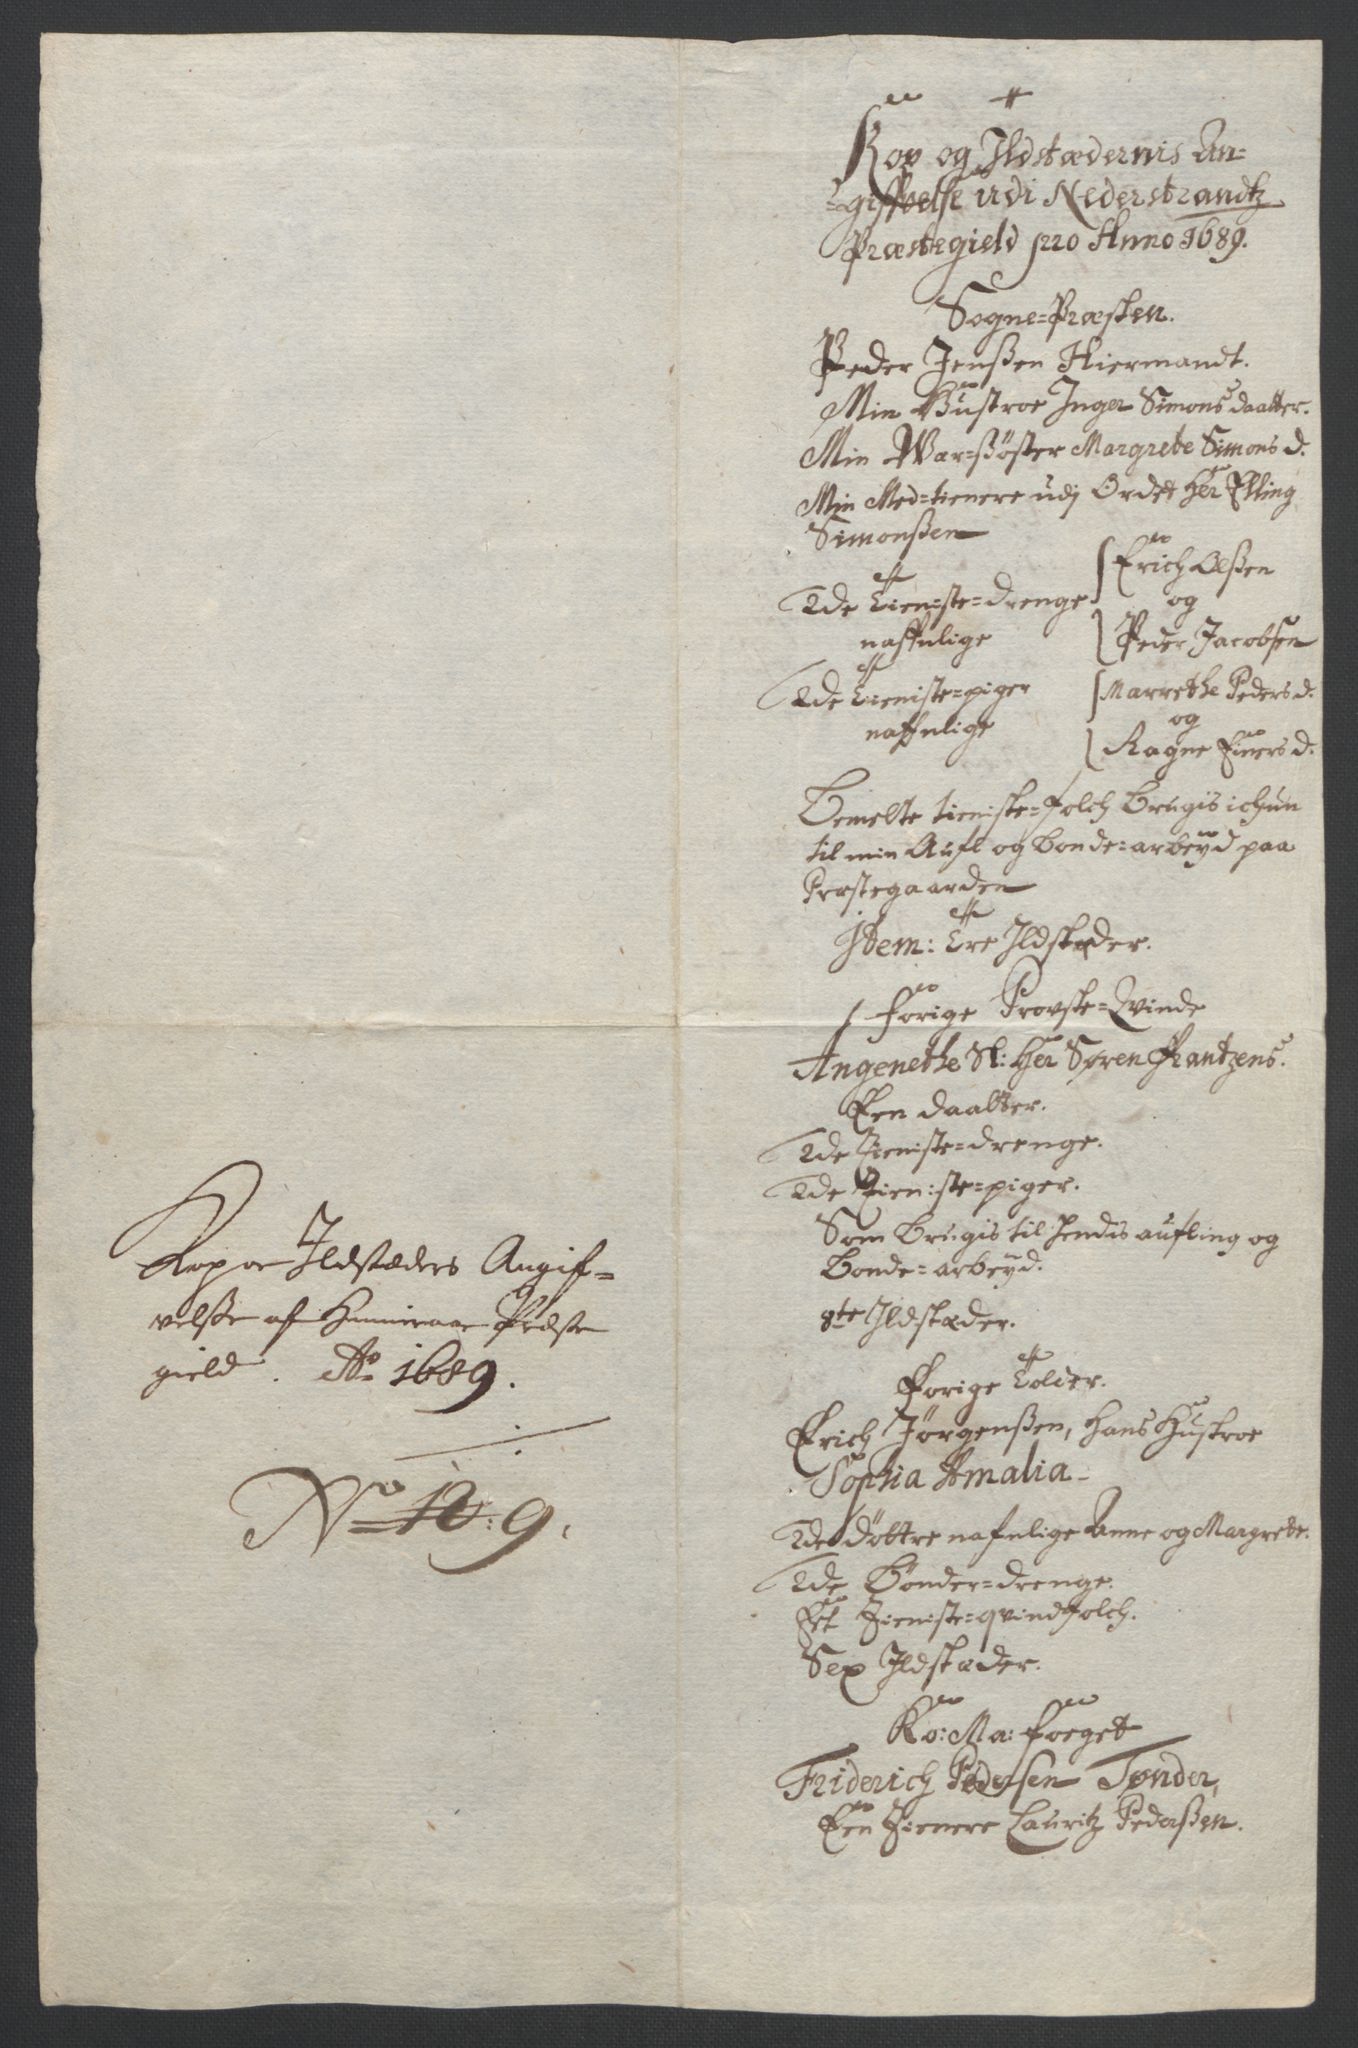 Kop og Ildstædernis An-
-giffvelse udi Nederstrandtz
Præstegield pro Anno 1689.
Sogne-Præsten.
Peder Jenßen Hiermandt.
Min Hustroe Inger Simons daatter.
Min Wær-Søster Margrete Simons d.
Min Med-tienere udj Ordet Her Elling
Simonßen
2de Tieniste-drenge Erich Olßen
naffnlige og
Peder Jacobsen
2de Tieniste-piger Marrethe Peders d.
naffnlige og
Ragne Einers d.
Bemelte tieniste-folch Brugis ichun
til min Aufl og bonde-arbeyd paa
Præstegaarden
Item: Tre Ildstæder.
forige Provste-Qvinde
Angenethe Sl: Her Søren Frantzens.
Een daatter.
2de Tieniste-drenge.
2de Tieniste-piger.
Som Brugis til hendis aufling og
Bonde-arbeyd.
8te Ildstæder.
Forige Tolder.
Erich Jørgenßen, Hans Hustroe
Sophia Amalia
2de døttre nafnlige Anne og Margrete.
2de Bønder-drenge.
Et Tieniste-qvindfolch.
Sex Ildstæder.
Ko: Ma: foeget
Friderich Pedersen Tønder,
Een Tienere Lauritz Pederßen.
Kop oc Ildstæders Angif-
velße af Præste
gield. Ao 1689.
No 10: 9.